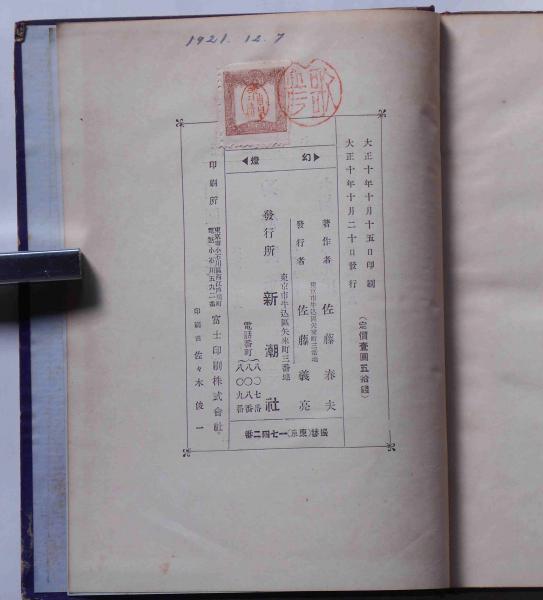 1921. 12. 7
大正十年十月十五日印刷
大正十年十月二十日發行
(定價壹圓五拾錢)
幻燈
著作者 佐藤春夫
東京市牛込區矢來町三番地
發行者 佐藤義亮
東京市牛込區矢來町三番地
發行所 新潮社
電話番町
八〇七番
八〇八番
八〇九番
振替(東京)一七四二番
印刷所 富士印刷株式會社
電話小石川五九二番
印刷者 佐々木俊一